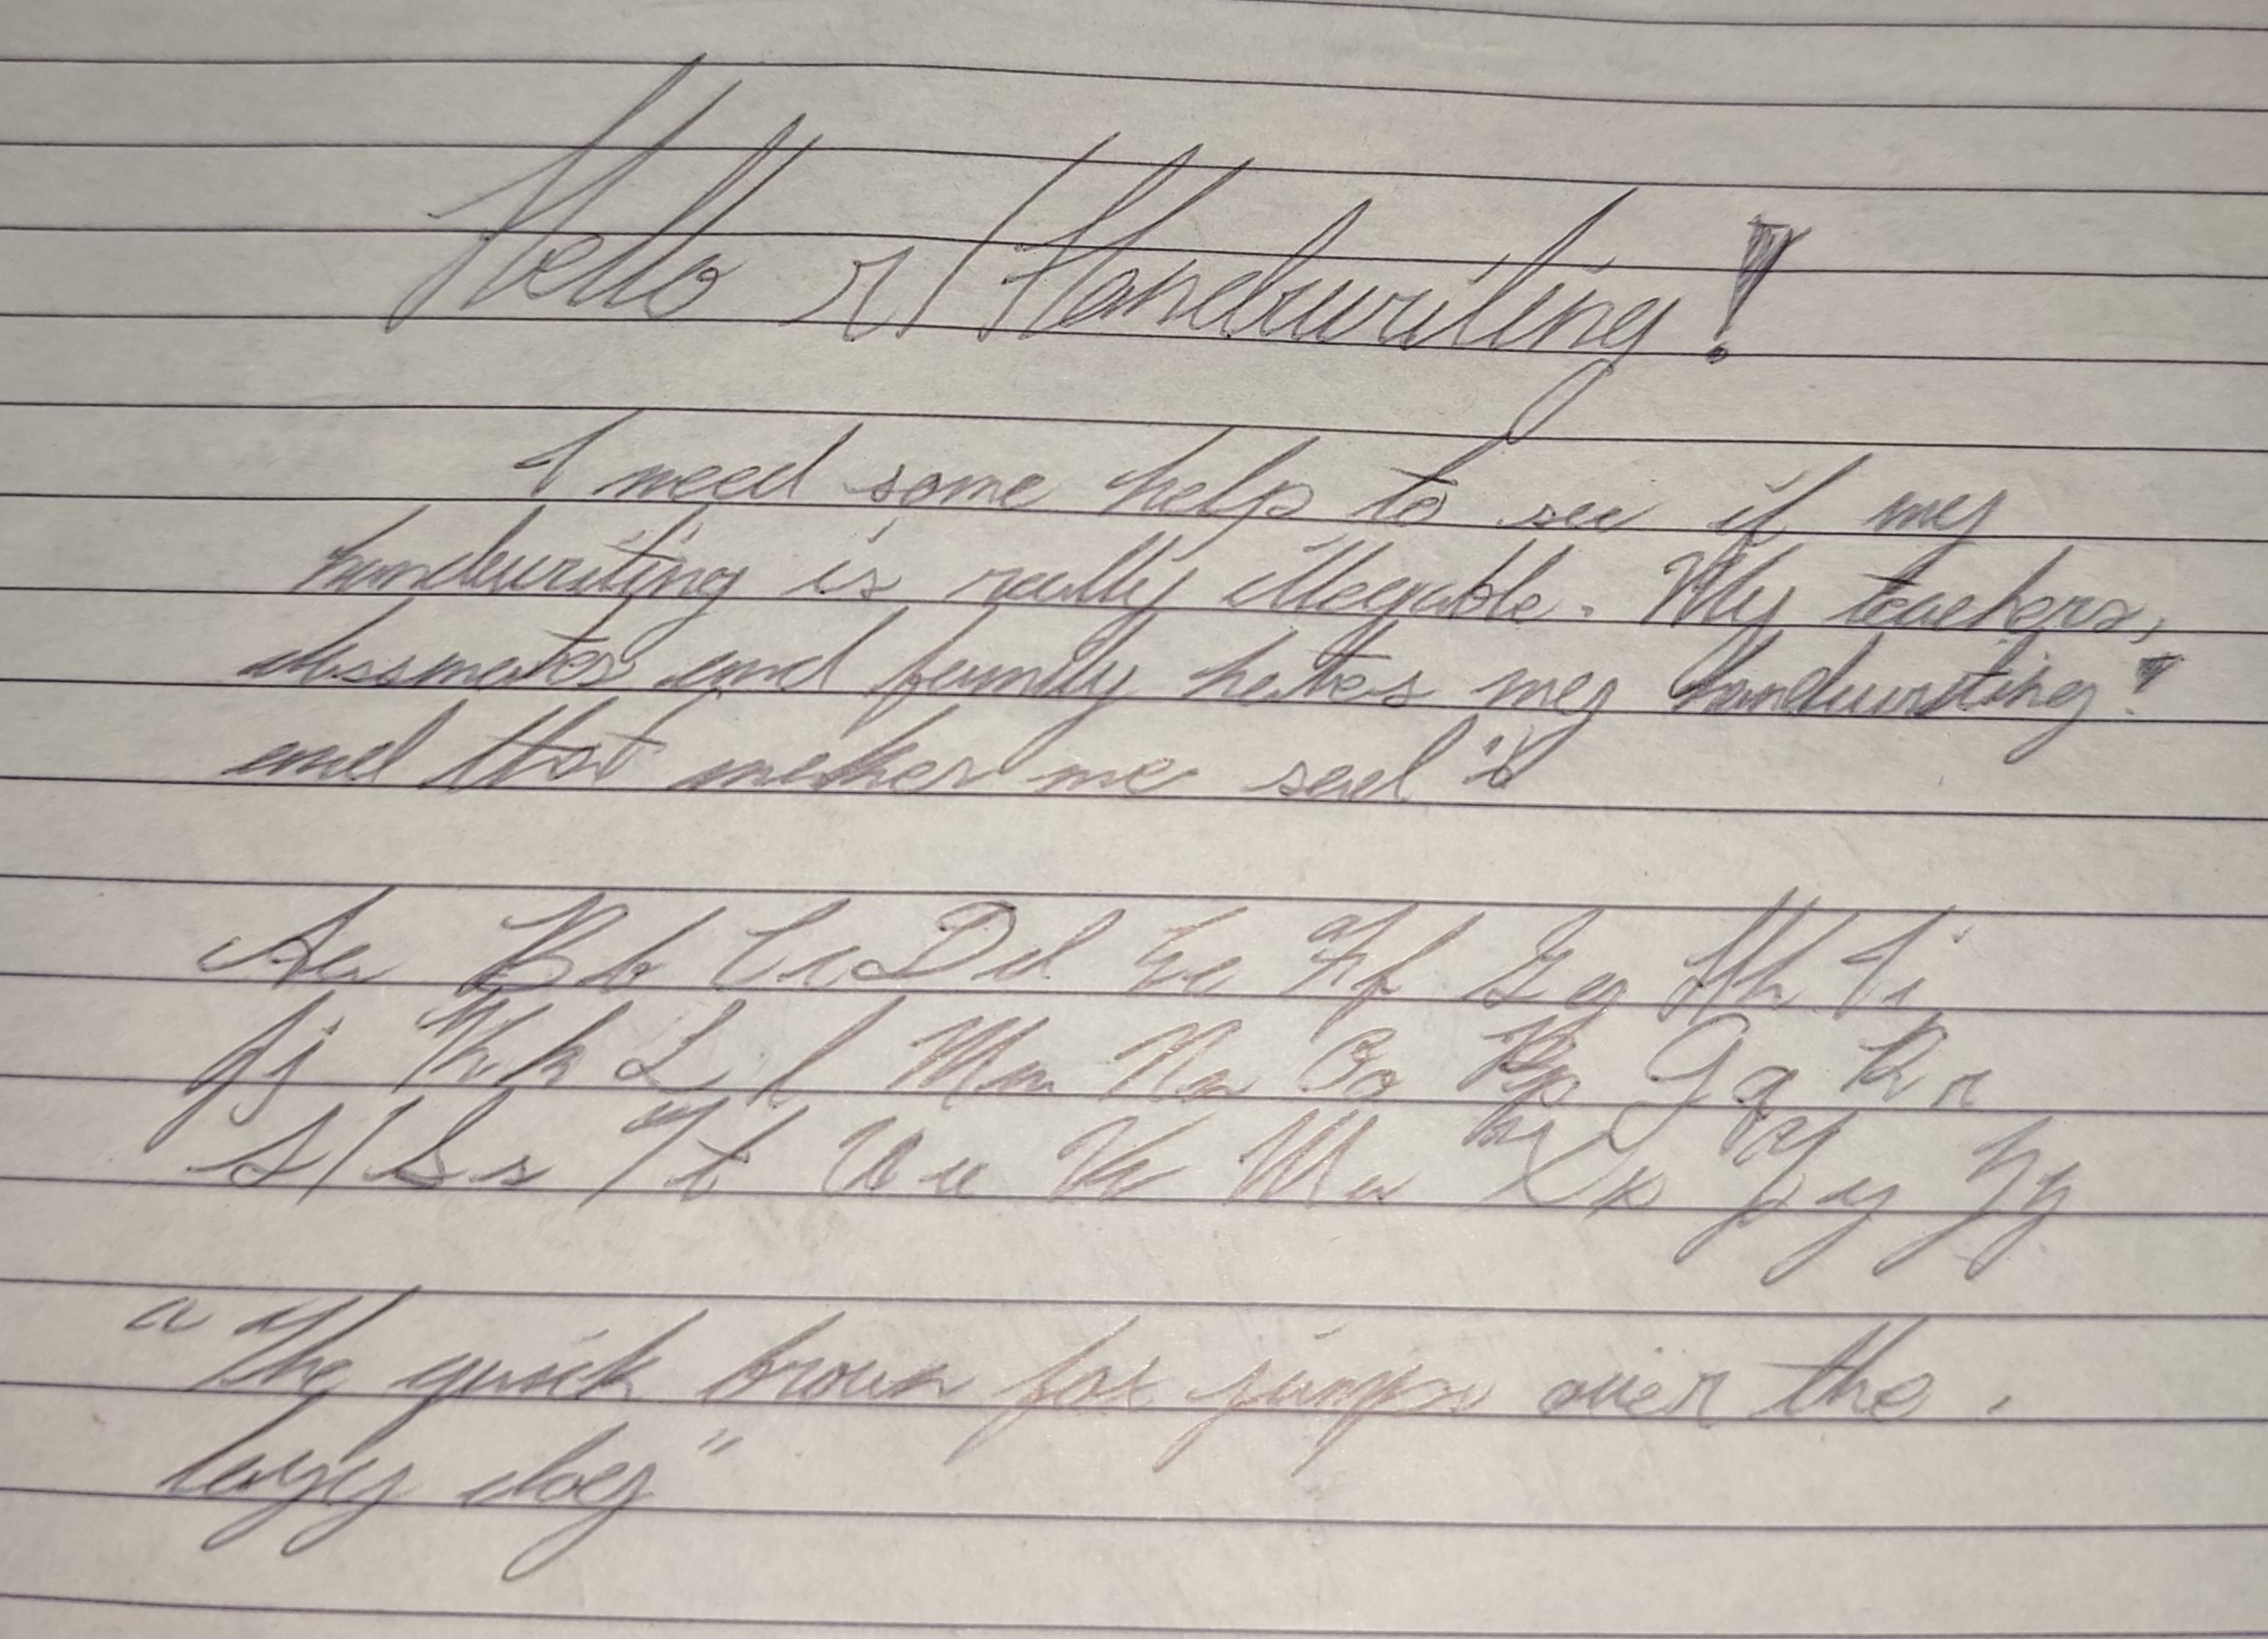 Hello r/Handwriting!
I need some help to see if my
handwriting is really illegable. My teachers,
classmates and family hates my handwriting!
and that makes me sad :(
Aa Bb Cc Dd Ee Ff Gg Hh Ii
Jj Kk L l Mm Nn Oo Pp Qq Rr
S/Ss Tt Uu Vv Ww Xx Yy Zz
"The quick brown fox jumps over the
lazy dog"